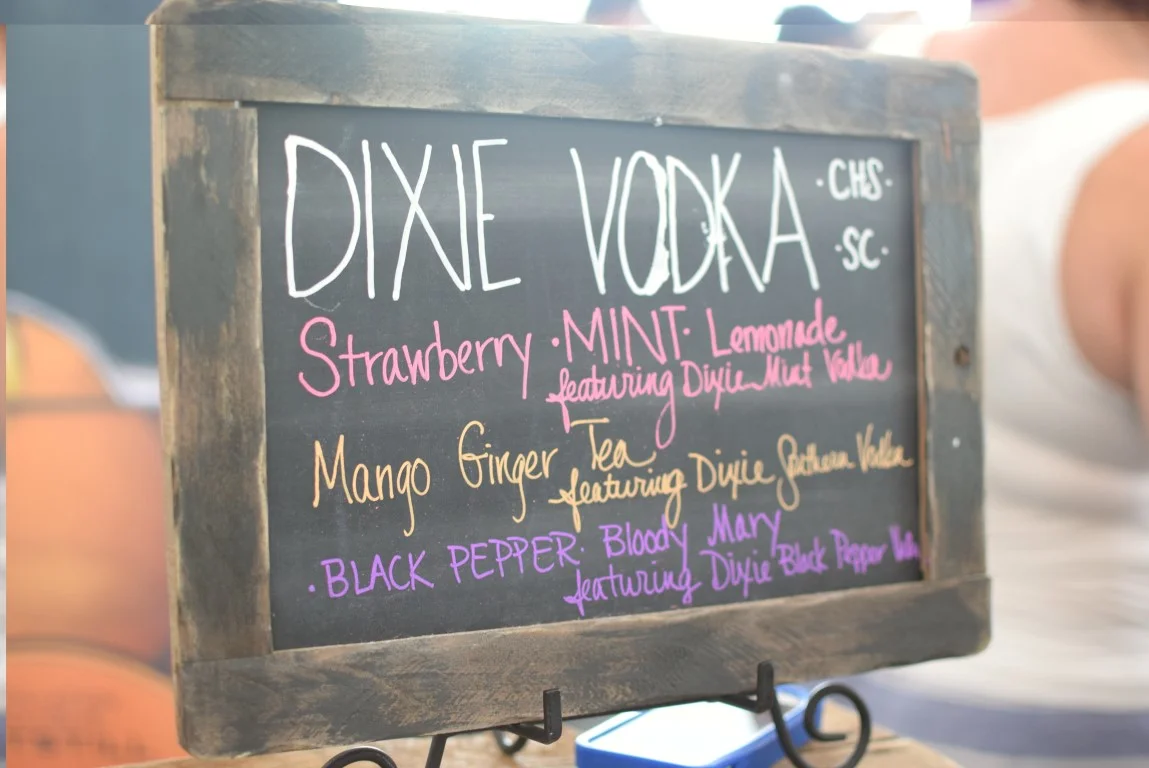 DIXIE VODKA ·CHS·
·SC·
Strawberry ·MINT· Lemonade
featuring Dixie Mint Vodka
Mango Ginger Tea
featuring Dixie Southern Vodka
·BLACK PEPPER· Bloody Mary
featuring Dixie Black Pepper Vodka